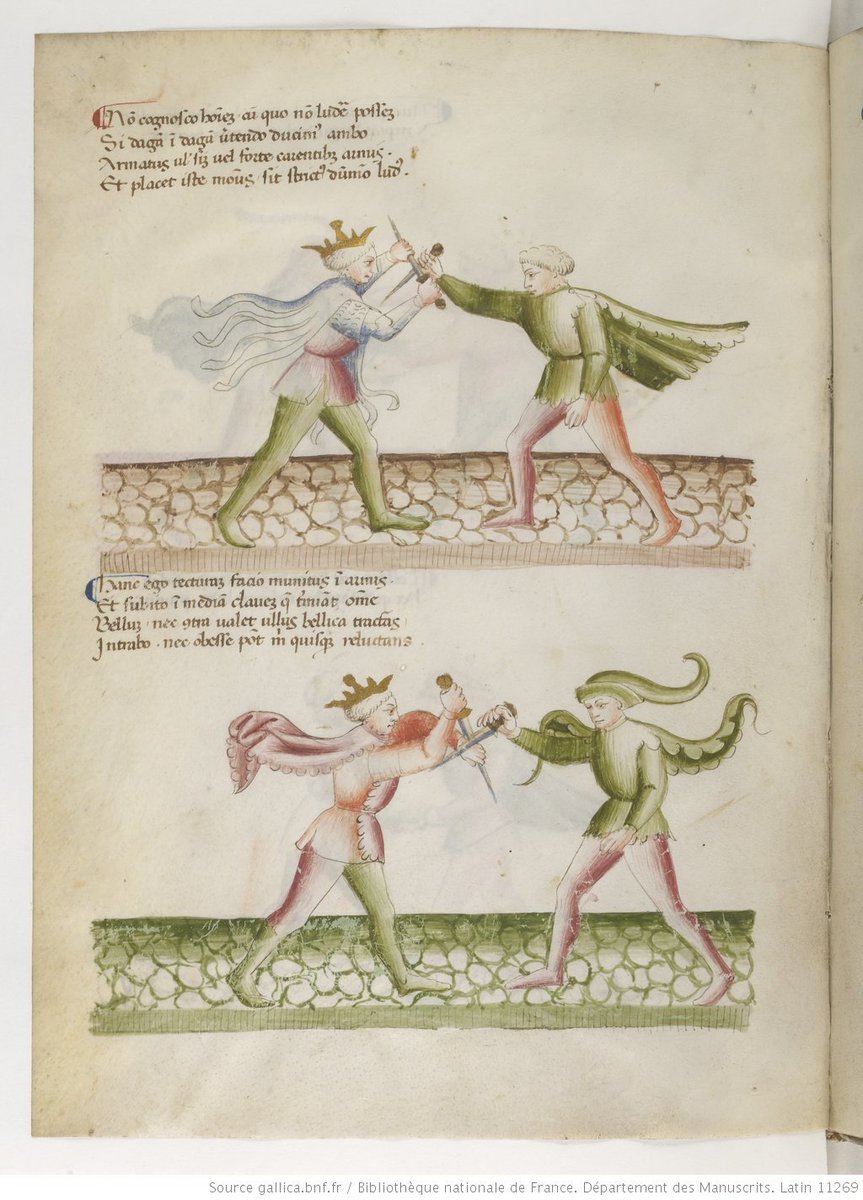 Nō cognosco hoīez. cū quo nō ludeͬ possez
Si dagā ī dagā ūtendo duciniꝰ ambo
Armatus ul' sīz vel forte carentibꝫ armis.
Et placet iste modꝰ, sit strictꝰ dūmō ludꝰ.
Hanc ego tecturaz facio munitus ī armis.
Et subito ī mediā clauez q̄ tīniāt om̄e
Belluz. nec ꝯtra valet ullus bellica tractās
Intrabo. nec obesse pōt m̄ quisqꝫ reluctans.
Source gallica.bnf.fr / Bibliothèque nationale de France. Département des Manuscrits. Latin 11269